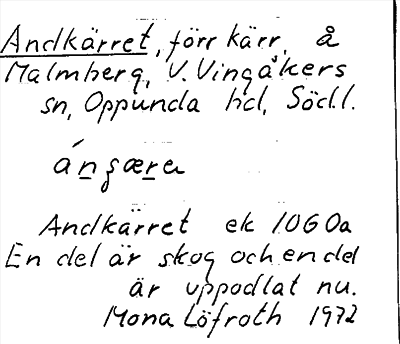 Andkärret, förr kärr, å
Malmberg, V. Vingåkers
sn, Oppunda hd, Södl.
ánȿæra
Andkärret ek 1060a
En del är skog och en del
är uppodlat nu.
Mona Löfroth 1972